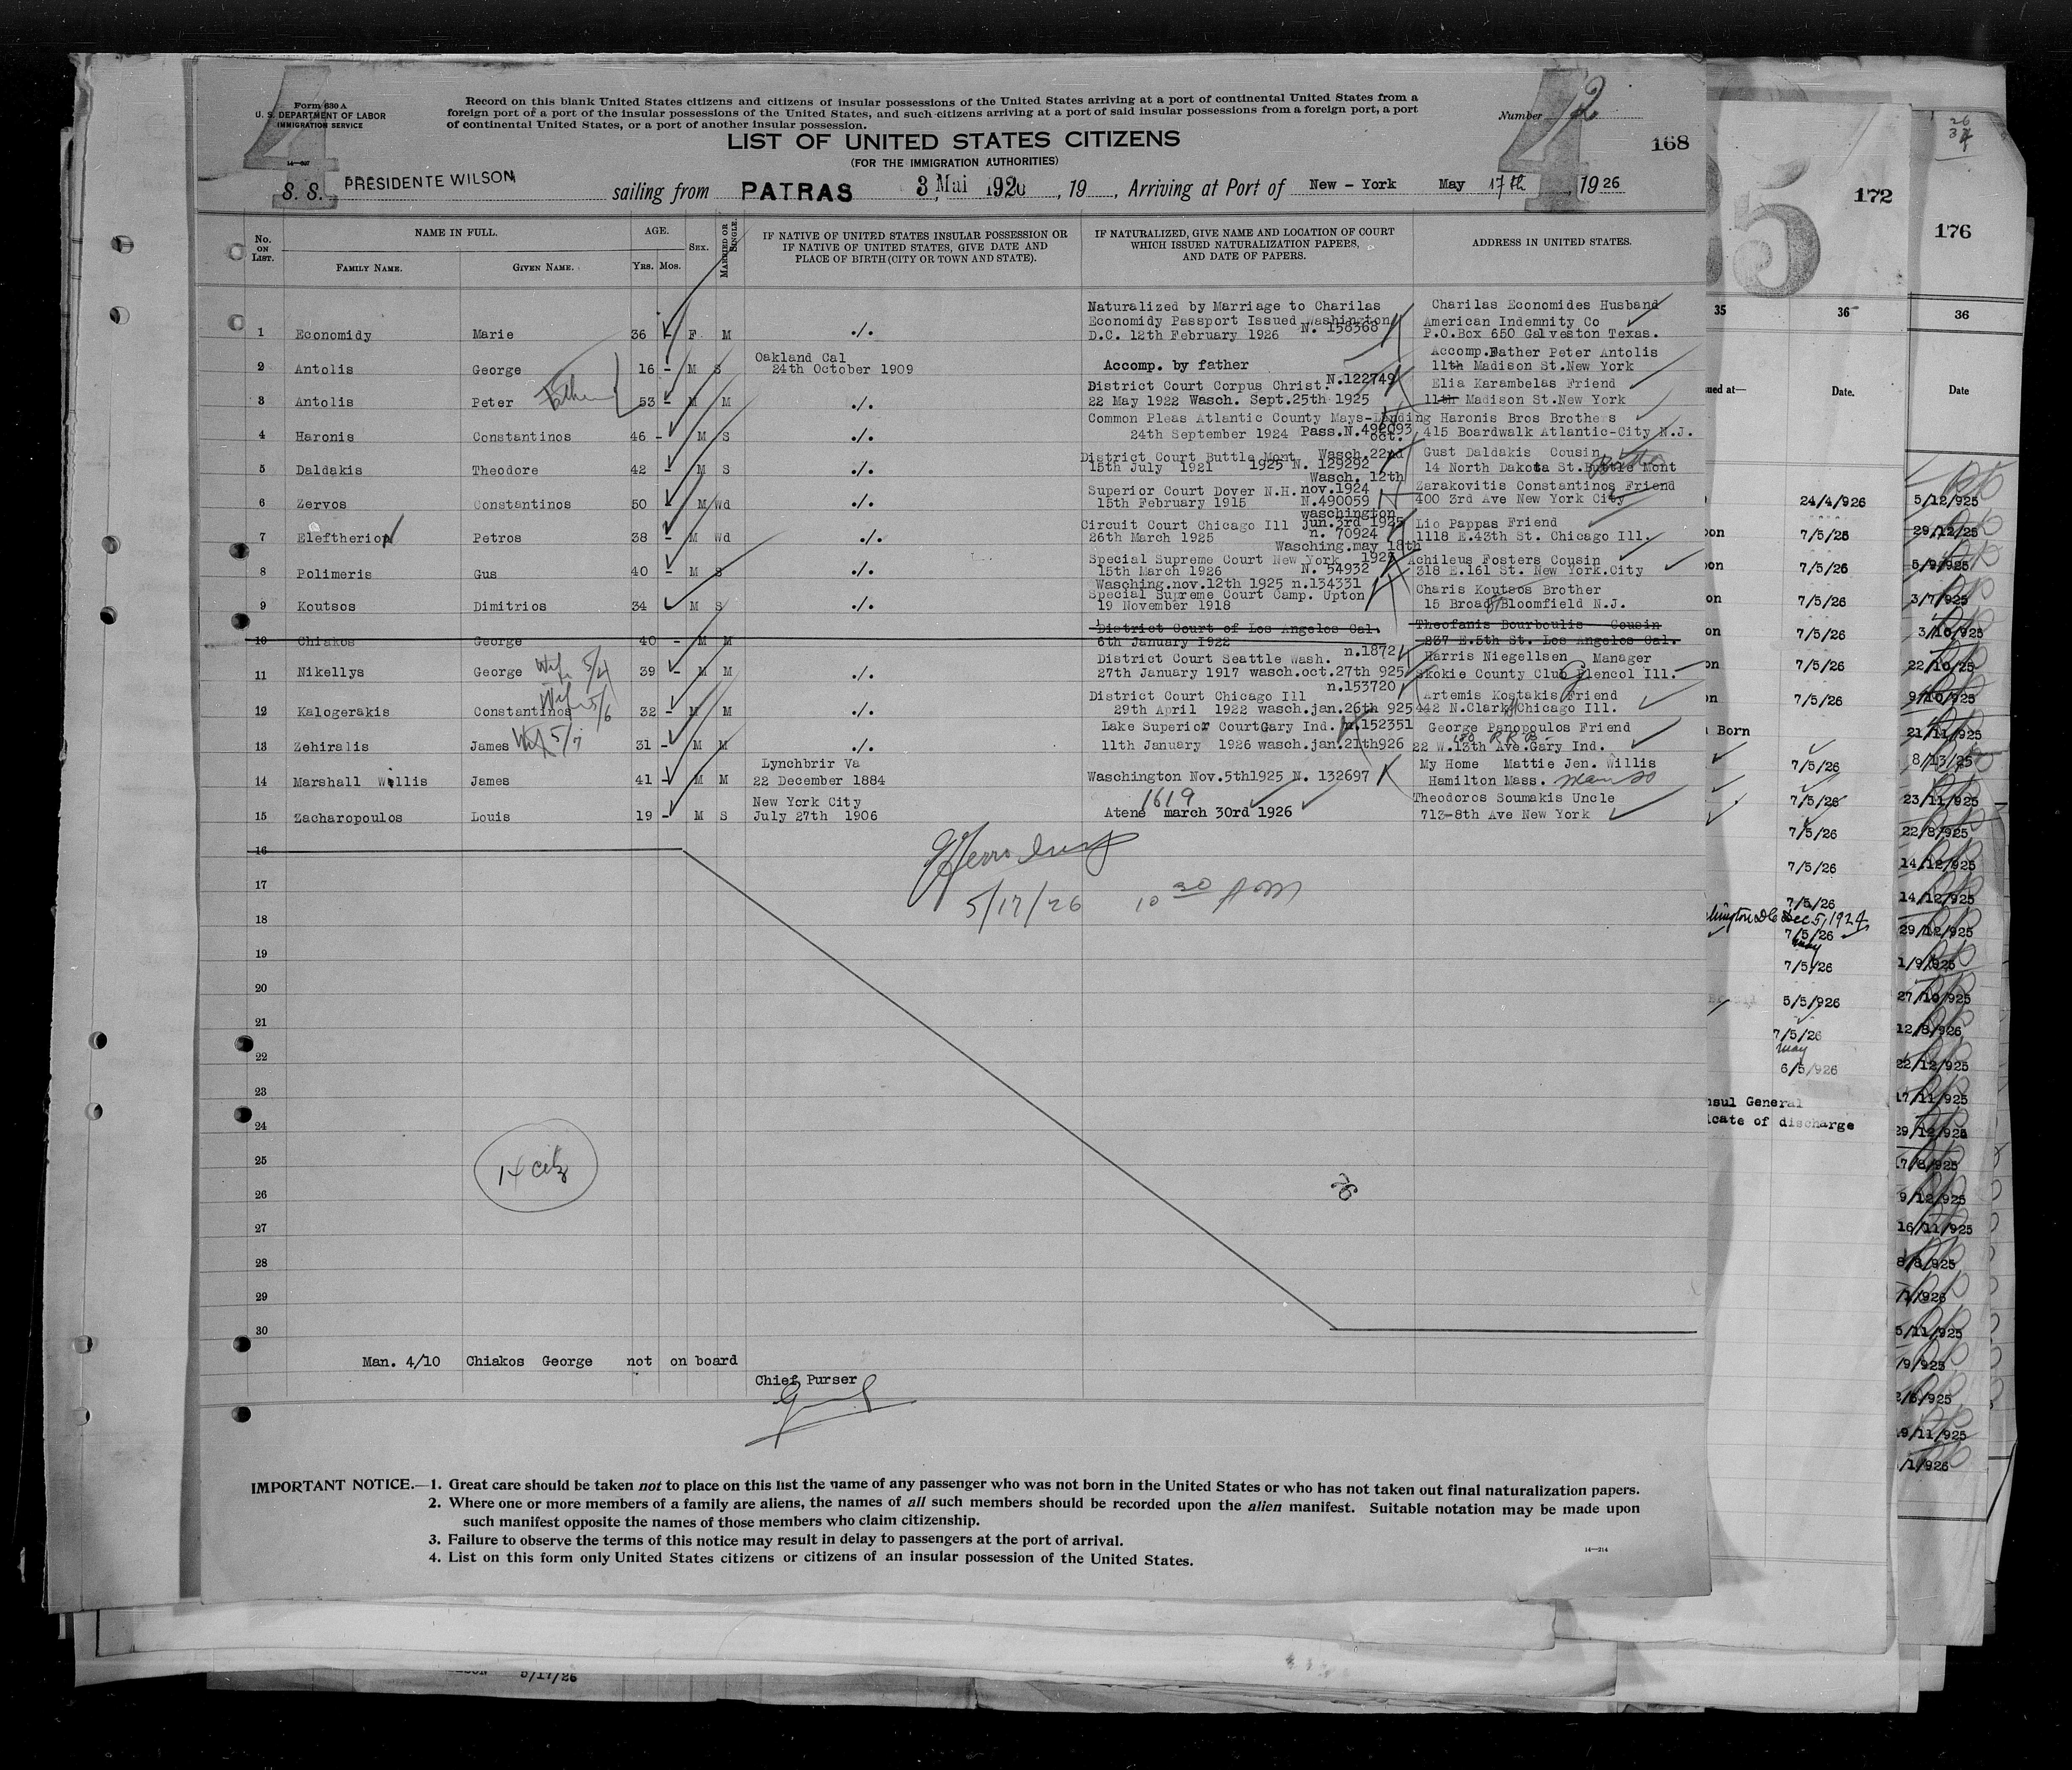 4
Form 630 A
U. S. DEPARTMENT OF LABOR
IMMIGRATION SERVICE
Record on this blank United States citizens and citizens of insular possessions of the United States arriving at a port of continental United States from a
foreign port of a port of the insular possessions of the United States, and such citizens arriving at a port of said insular possessions from a foreign port, a port
of continental United States, or a port of another insular possession.
LIST OF UNITED STATES CITIZENS
(FOR THE IMMIGRATION AUTHORITIES)
Number 2
4
168
S. S. PRESIDENTE WILSON sailing from PATRAS 3 Mai 1926, 19 , Arriving at Port of New - York May 17th, 1926
No. ON LIST.
NAME IN FULL.
FAMILY NAME. GIVEN NAME.
AGE.
YRS. MOS.
SEX.
MARRIED OR SINGLE.
IF NATIVE OF UNITED STATES INSULAR POSSESSION OR
IF NATIVE OF UNITED STATES, GIVE DATE AND
PLACE OF BIRTH (CITY OR TOWN AND STATE).
IF NATURALIZED, GIVE NAME AND LOCATION OF COURT
WHICH ISSUED NATURALIZATION PAPERS,
AND DATE OF PAPERS.
ADDRESS IN UNITED STATES.
Naturalized by Marriage to Charilas Charilas Economides Husband
Economidy Passport Issued Washington American Indemnity Co
1 Economidy Marie 36 - F M ./. D.C. 12th February 1926 N. 158368 P.O.Box 650 Galveston Texas.
Oakland Cal Accomp.Father Peter Antolis
2 Antolis George 16 - M S 24th October 1909 Accomp. by father 11th Madison St.New York
Father
District Court Corpus Christ. N.122749 Elia Karambelas Friend
3 Antolis Peter 53 - M M ./. 22 May 1922 Wasch. Sept.25th 1925 11th Madison St.New York
Common Pleas Atlantic County Mays-Landing Haronis Bros Brothers
4 Haronis Constantinos 46 - M S ./. 24th September 1924 Pass.N.492093 415 Boardwalk Atlantic-City N.J.
oct.
District Court Buttle Mont Wasch.22nd Gust Daldakis Cousin
5 Daldakis Theodore 42 - M S ./. 15th July 1921 1925 N. 129292 14 North Dakota St.Buttle Mont
Wasch. 12th
Superior Court Dover N.H. nov.1924 Zarakovitis Constantinos Friend
6 Zervos Constantinos 50 - M Wd ./. 15th February 1915 N.490059 400 3rd Ave New York City
waschington
Circuit Court Chicago Ill Jun.3rd 1925 Lio Pappas Friend
7 Eleftherion Petros 38 - M Wd ./. 26th March 1925 n. 70924 1118 E.43th St. Chicago Ill.
Wasching.may 18th
Special Supreme Court New York 1925 Achileus Fosters Cousin
8 Polimeris Gus 40 - M S ./. 15th March 1926 N. 54932 318 E.161 St. New York.City
Wasching.nov.12th 1925 n.134331
Special Supreme Court Camp. Upton Charis Koutsos Brother
9 Koutsos Dimitrios 34 M S ./. 19 November 1918 15 Broad St Bloomfield N.J.
District Court of Los Angelos Cal. Theofanis Bourboulis Cousin
10 Chiakos George 40 - M M 6th January 1922 837 E.5th St. Los Angelos Cal.
District Court Seattle Wash. n.1872 Harris Niegellsen Manager
11 Nikellys George Wife 5/4 39 - M M ./. 27th January 1917 wasch.oct.27th 925 Skokie County Club Glencol Ill.
District Court Chicago Ill n.153720 Artemis Kostakis Friend
12 Kalogerakis Constantinos Wife 5/6 32 - M M ./. 29th April 1922 wasch.jan.26th 925 442 N.Clark Chicago Ill.
Lake Superior Court Gary Ind. n.152351 George Panopoulos Friend
13 Zehiralis James Wife 5/7 31 - M M ./. 11th January 1926 wasch.jan.21th926 22 W.13th Ave.Gary Ind.
Lynchbrir Va My Home Mattie Jen. Willis
14 Marshall Willis James 41 - M M 22 December 1884 Waschington Nov.5th1925 N. 132697 Hamilton Mass.
New York City 1619 Theodoros Soumakis Uncle
15 Zacharopoulos Louis 19 - M S July 27th 1906 Atene march 30rd 1926 713-8th Ave New York
16
5/17/26 10 30 AM
17
18
19
20
21
22
23
24
25
14 citz
26
27
28
29
30
Man. 4/10 Chiakos George not on board
Chief Purser
IMPORTANT NOTICE.—1. Great care should be taken not to place on this list the name of any passenger who was not born in the United States or who has not taken out final naturalization papers.
2. Where one or more members of a family are aliens, the names of all such members should be recorded upon the alien manifest. Suitable notation may be made upon
such manifest opposite the names of those members who claim citizenship.
3. Failure to observe the terms of this notice may result in delay to passengers at the port of arrival.
4. List on this form only United States citizens or citizens of an insular possession of the United States.
14—214
5
172
35 36
Date.
24/4/926
7/5/26
7/5/26
7/5/26
7/5/26
7/5/26
7/5/26
Born
7/5/26
7/5/26
7/5/26
7/5/26
7/5/26
Dec 5, 1924
7/5/26
may
7/5/26
5/5/926
7/5/26
may
6/5/926
General
of discharge
176
36
Date
5/12/925
29/12/25
5/9/925
3/7/925
3/10/925
22/10/25
9/10/925
21/11/925
8/13/25
23/11/925
22/8/925
14/12/925
14/12/925
29/12/925
1/9/925
27/10/925
12/8/926
22/12/925
17/11/925
29/12/925
17/8/925
9/12/925
16/11/925
8/8/925
5/11/925
/9/925
2/6/925
9/11/925
/1/926
5/17/26